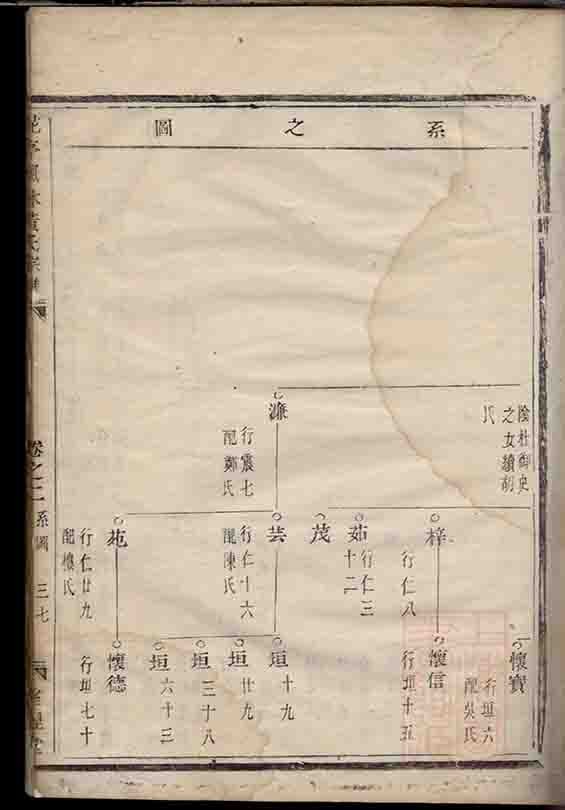 系之圖
陰杜御史
之女續胡
氏
濂
行震七
配鄭氏
梓
行仁八
茹
行仁三
十二
茂
芸
行仁十六
配陳氏
苑
行仁廿九
配樓氏
懷寶
行垣六
配吳氏
懷信
行垣十五
垣十九
垣廿九
垣三十八
垣六十三
懷德
行垣七十
卷之二
系圖
三七